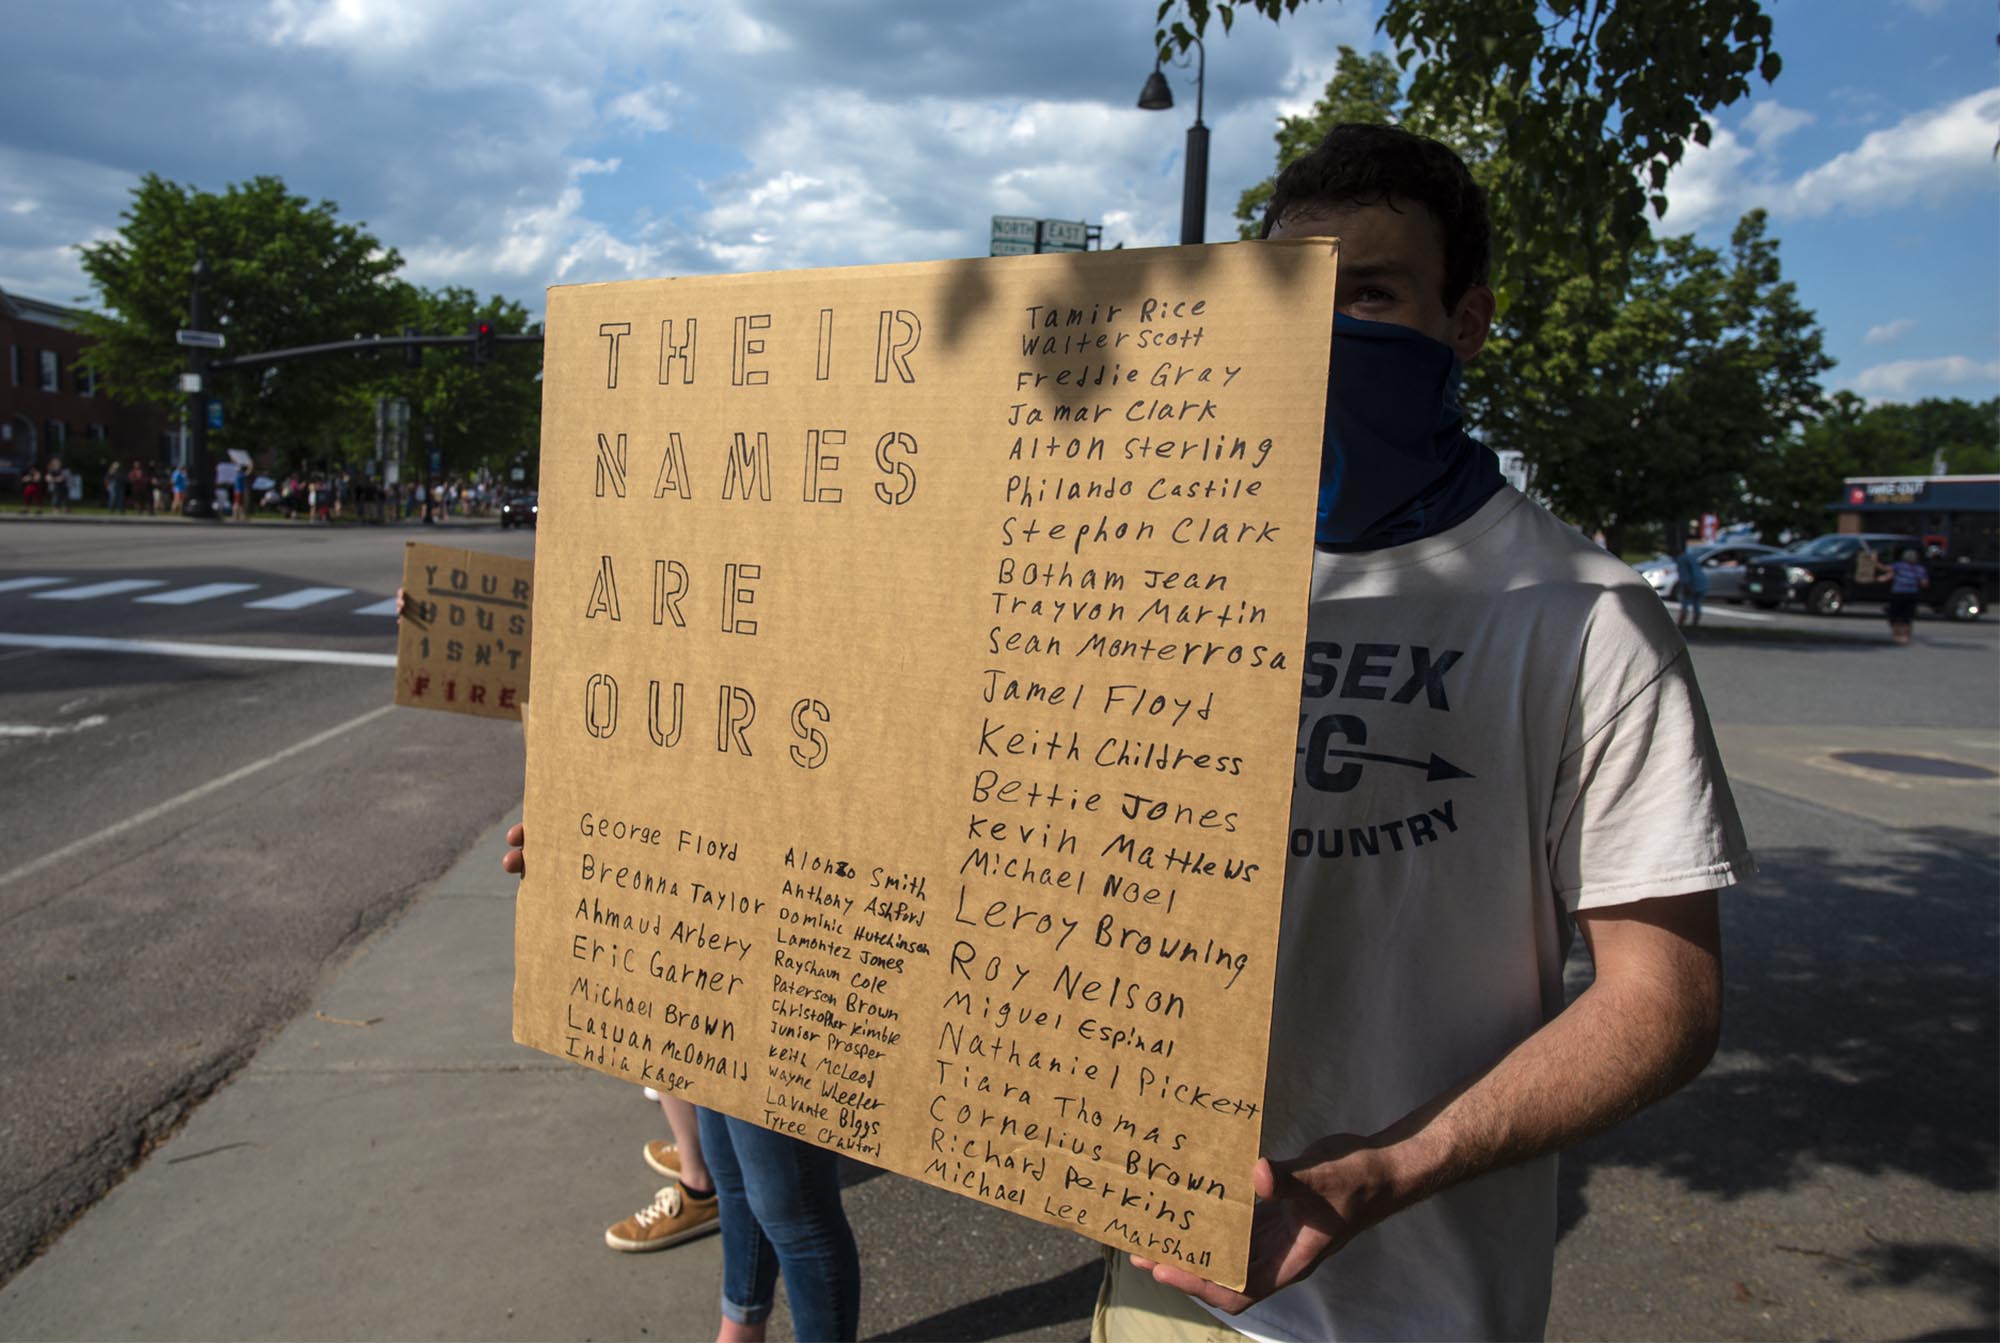 THEIR
NAMES
ARE
OURS
George Floyd
Breonna Taylor
Ahmaud Arbery
Eric Garner
Michael Brown
Laquan McDonald
India Kager
Alonzo Smith
Anthony Ashford
Dominic Hutchinson
Lamontez Jones
Rayshaun Cole
Paterson Brown
Christopher Kimble
Junior Prosper
Keith McLeod
Wayne Wheeler
Lavante Biggs
Tyree Crawford
Tamir Rice
Walter Scott
Freddie Gray
Jamar Clark
Alton Sterling
Philando Castile
Stephon Clark
Botham Jean
Trayvon Martin
Sean Monterrosa
Jamel Floyd
Keith Childress
Bettie Jones
Kevin Matthews
Michael Noel
Leroy Browning
Roy Nelson
Miguel Espinal
Nathaniel Pickett
Tiara Thomas
Cornelius Brown
Richard Perkins
Michael Lee Marshall
YOUR
HOUS
ISN'T
FIRE
NORTH
EAST
SEX
C
OUNTRY